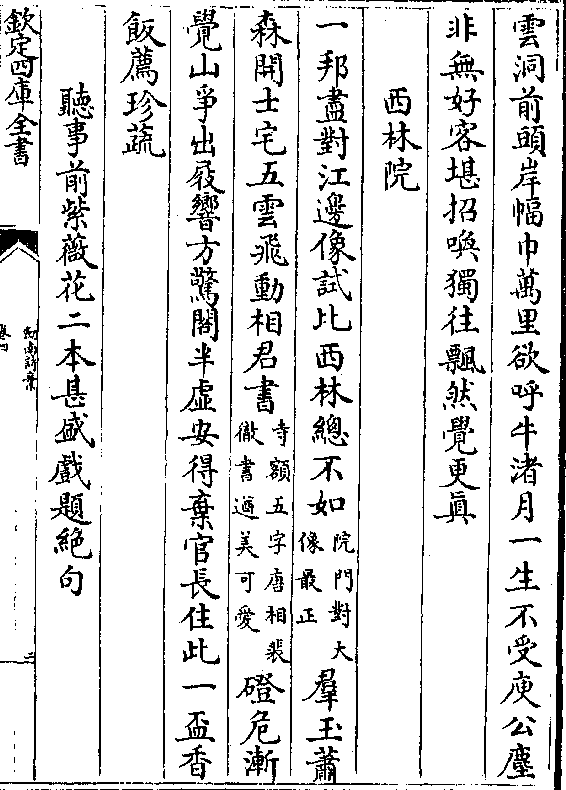 雲洞前頭岸幅巾萬里欲呼牛渚月一生不受庾公塵
非無好客堪招喚獨往飄然覺更真
西林院
一邦盡對江邊像試比西林總不如院門對大像最正羣玉蕭
森開士宅五雲飛動相君書寺額五字唐相裴徹書遒美可愛磴危漸
覺山爭出屐響方驚閣半虛安得棄官長住此一盃香
飯薦珍蔬
聽事前紫薇花二本甚盛戲題絶句
欽定四庫全書
劒南詩稾
卷四
三